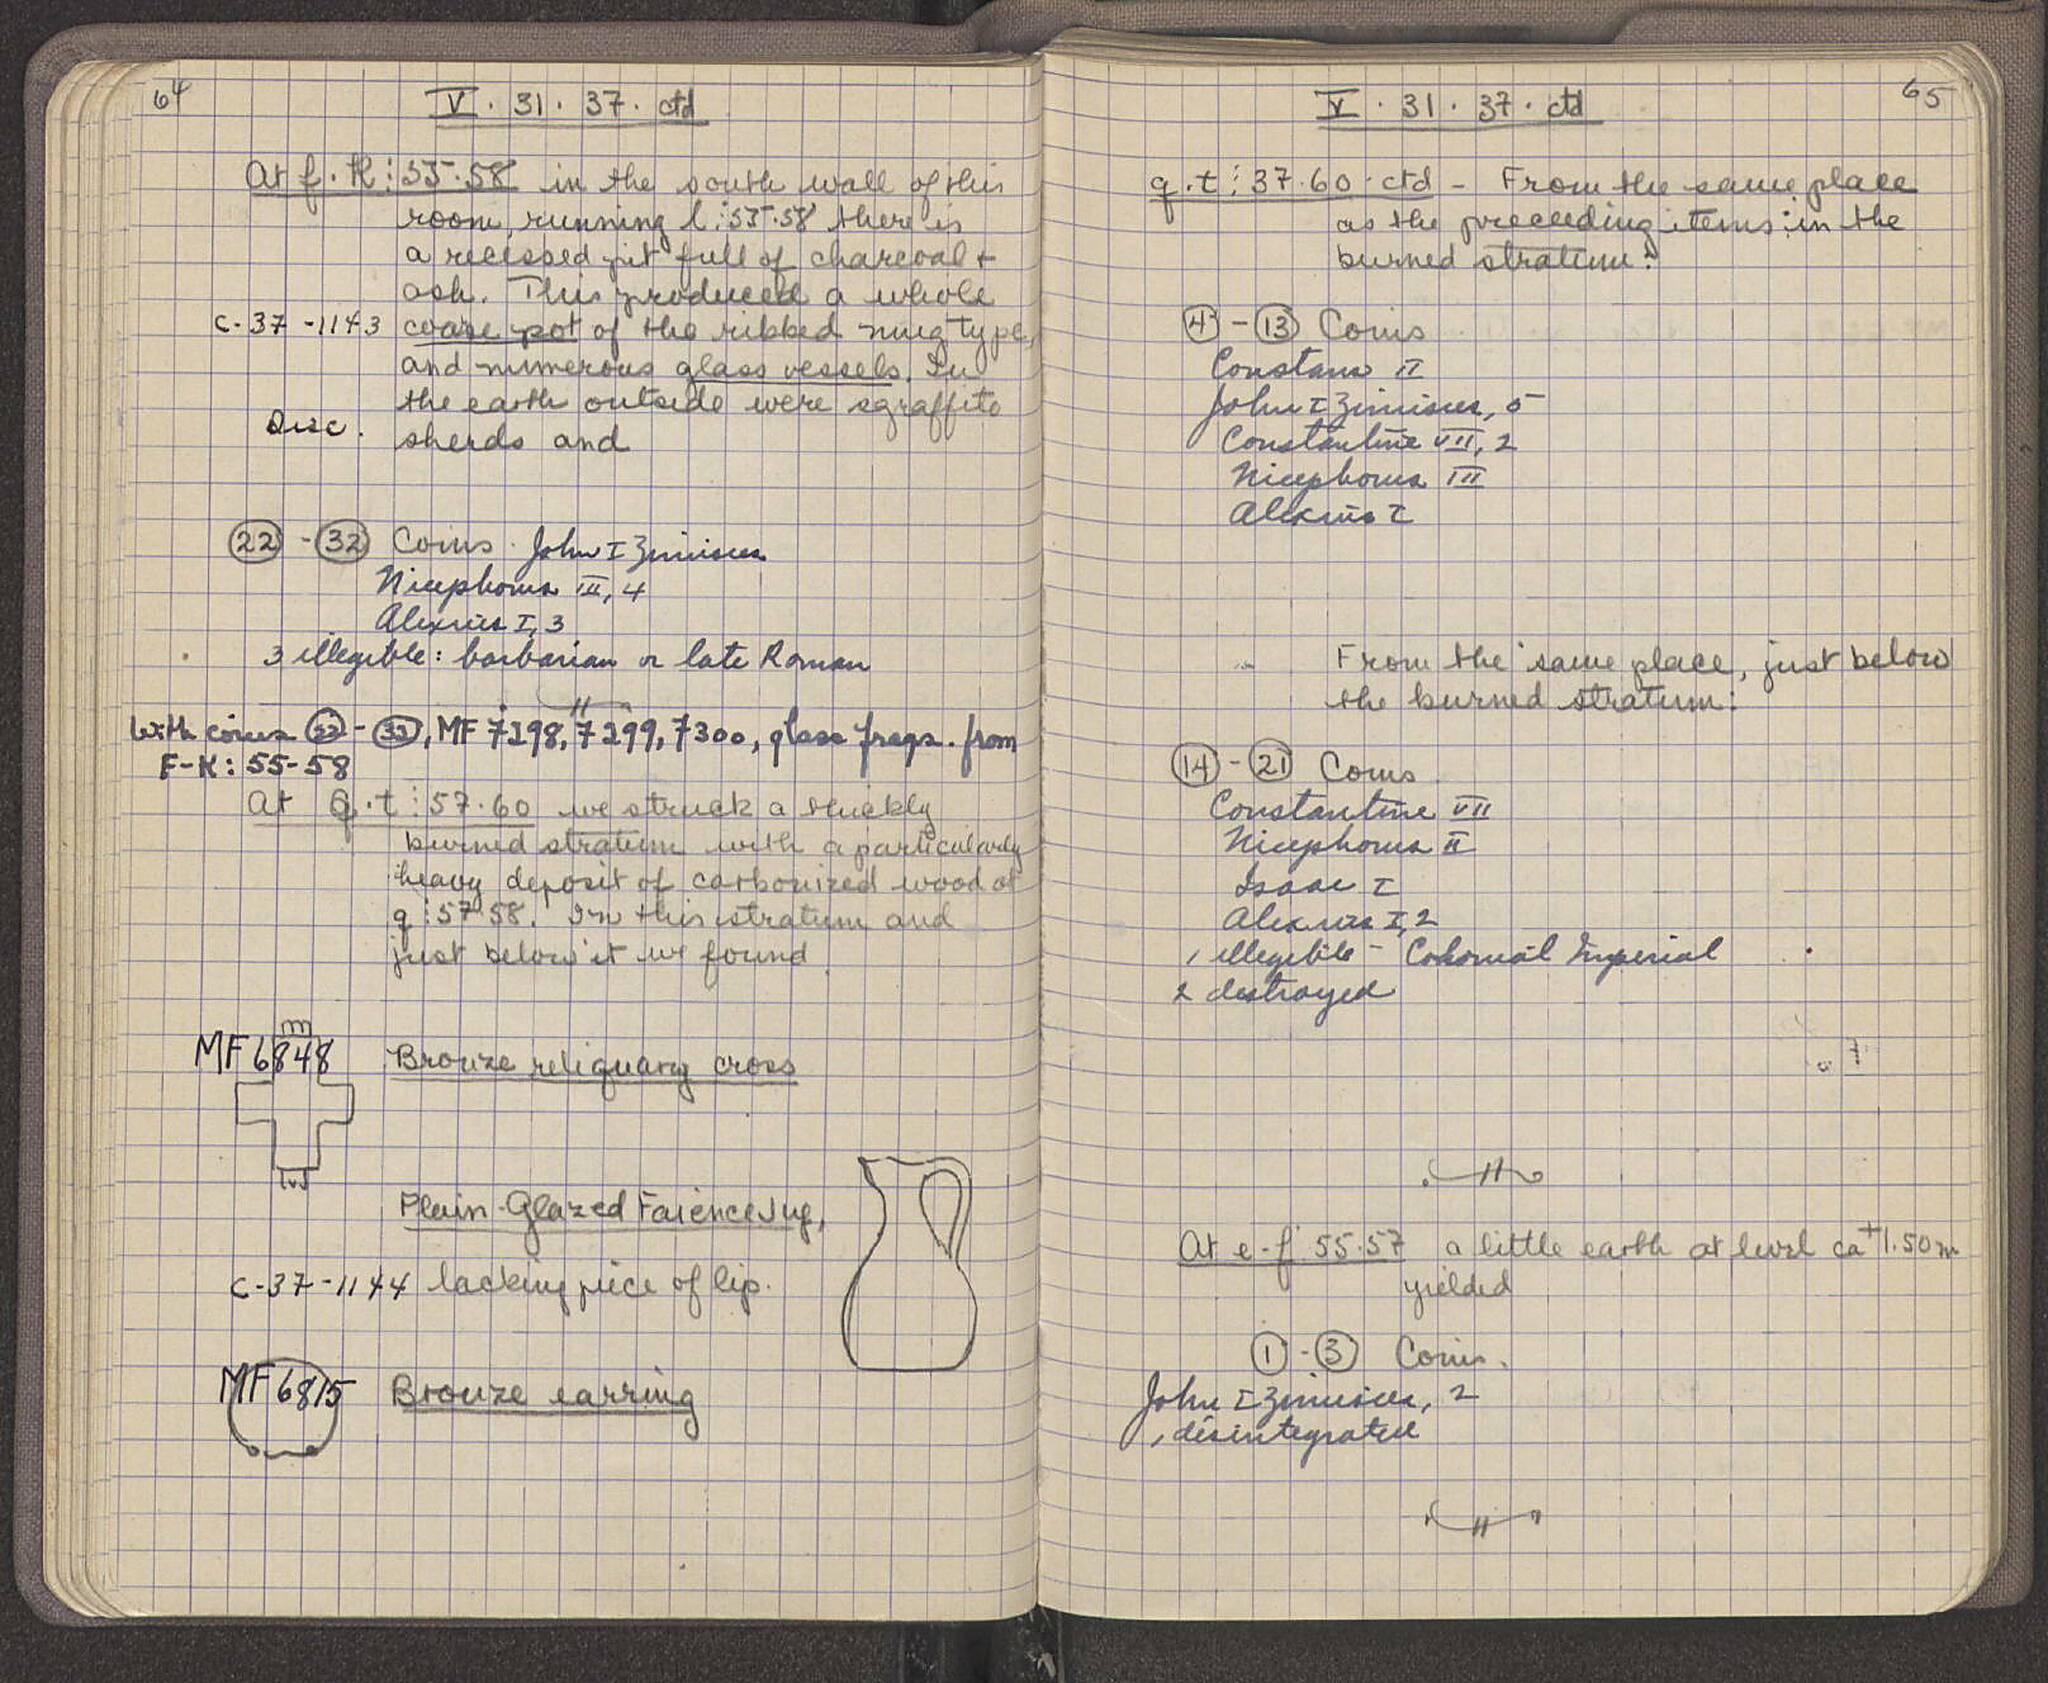 64
V · 31 · 37 · ctd
At f·K: 55·58 in the south wall of this
room, running l: 55·58 there is
a recessed pit full of charcoal +
ash. This produced a whole
C-37-1143 coarse pot of the ribbed mug type,
and numerous glass vessels. In
the earth outside were sgraffito
Disc. sherds and
22 - 32 Coins. John I Zimisces
Nicephorus III, 4
Alexius I, 3
3 illegible: barbarian or late Roman
With coins 22 - 32, MF 7298, 7299, 7300, glass frags. from
F-K: 55-58
At q·t: 57·60 we struck a thickly
burned stratum with a particularly
heavy deposit of carbonized wood at
q: 57·58. In this stratum and
just below it we found
MF 6848 Bronze reliquary cross
Plain-Glazed Faience Jug,
C-37-1144 lacking piece of lip.
MF 6815 Bronze earring
65
V · 31 · 37 · ctd
q·t: 37·60·ctd - From the same place
as the preceeding items: in the
burned stratum:
4 - 13 Coins
Constans II
John I Zimisces, 5
Constantine VII, 2
Nicephorus III
Alexius I
From the same place, just below
the burned stratum:
14 - 21 Coins
Constantine VII
Nicephorus II
Isaac I
Alexius I, 2
1 illegible - Colonial Imperial
2 destroyed
At e-f: 55·57 a little earth at level ca +1.50 m
yielded
1 - 3 Coins.
John I Zimisces, 2
1 disintegrated